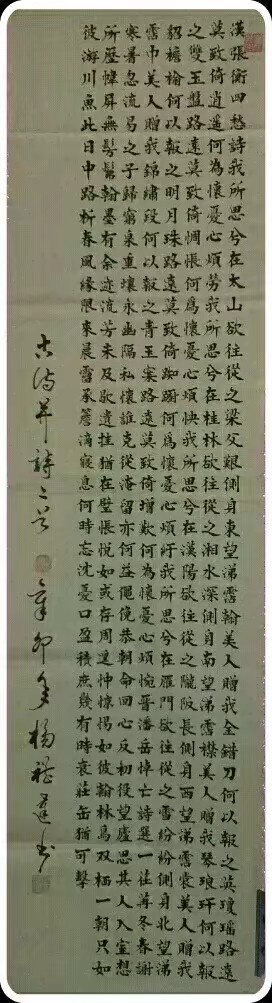 漢張衡四愁詩我所思兮在太山欲往從之梁父艱側身東望涕霑翰美人贈我金錯刀何以報之英瓊瑤路遠
莫致倚逍遙何為懷憂心煩勞我所思兮在桂林欲往從之湘水深側身南望涕霑襟美人贈我琴琅玕何以報
之雙玉盤路遠莫致倚惆悵何為懷憂心煩怏我所思兮在漢陽欲往從之隴阪長側身西望涕霑裳美人贈我
貂襜褕何以報之明月珠路遠莫致倚踟躕何爲懷憂心煩紆我所思兮在雁門欲往從之雪紛紛側身北望涕
霑巾美人贈我錦繡段何以報之青玉案路遠莫致倚增歎何為懷憂心煩惋晉潘岳悼亡詩選一荏苒冬春謝
寒暑忽流易之子歸窮泉重壤永幽隔私懷誰克從淹留亦何益僶俛恭朝命回心反初役望廬思其人入室想
所歷幃屏無髣髴翰墨有余迹流芳未及歇遺挂猶在壁悵怳如或存周遑忡驚惕如彼翰林鳥双栖一朝只如
彼游川魚比目中路析春風緣隙來晨霤承簷滴寢息何時忘沈憂日盈積庶幾有時衰莊缶猶可擊
古詩
辛卯年楊